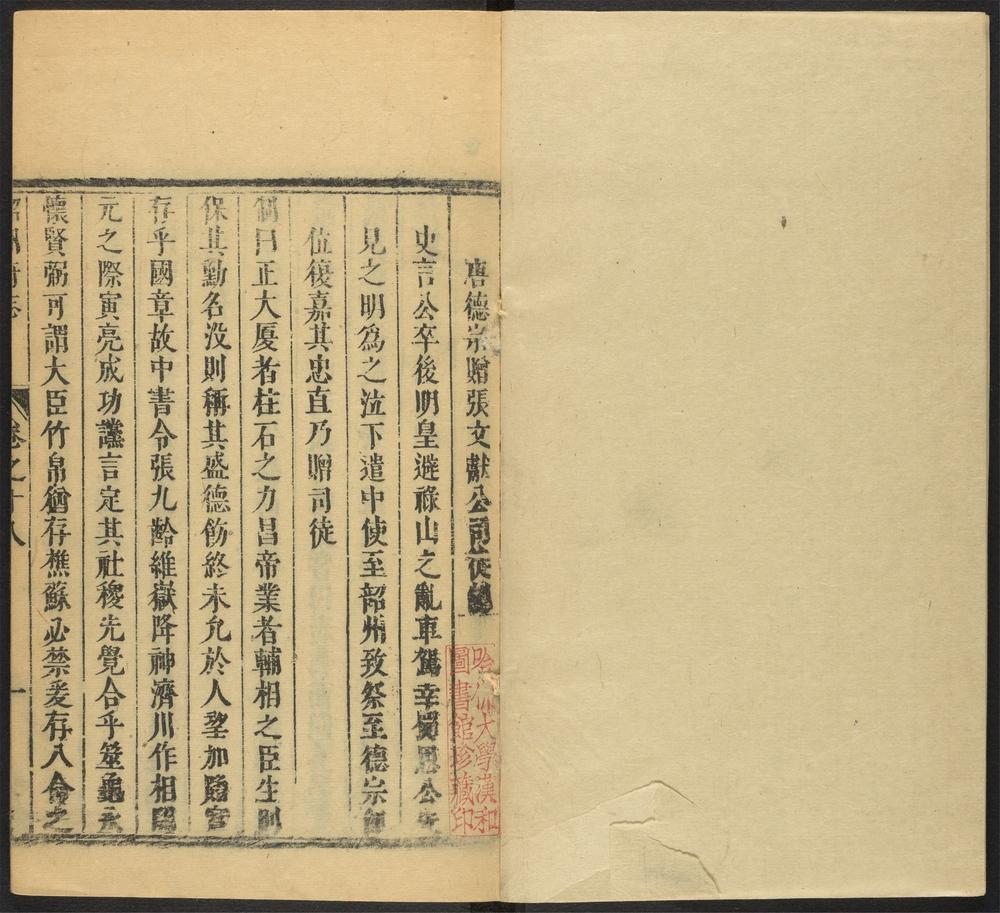 唐德宗贈張文獻公司徒
史言公卒後明皇避祿山之亂車駕幸蜀思公先
見之明為之泣下遣中使至韶州致祭至德宗
位復嘉其忠直乃贈司徒
制曰正大厦者柱石之力昌帝業者輔相之臣生則
保其勳名沒則稱其盛德飭終未允於人望加贈實
存乎國章故中書令張九齡維嶽降神濟川作相開
元之際寅亮成功讜言定其社稷先覺合乎筮龜永
懷賢弼可謂大臣竹帛猶存樵蘇必禁爰存八命之
韶州府志 卷之十八 一
哈佛大學漢和
圖書館珍藏印